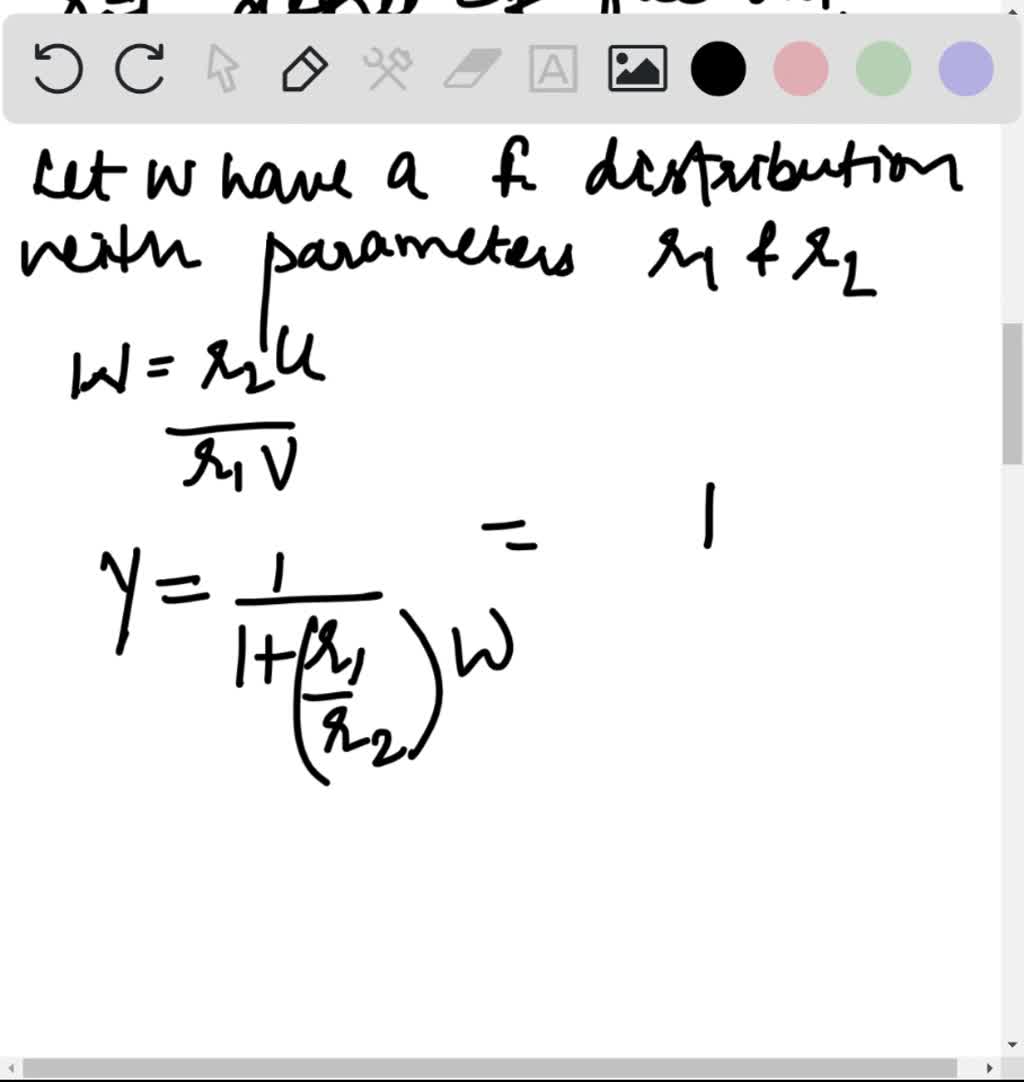 Let W have a f distribution
with parameters r1 & r2
W = r2 U
r1 V
Y = 1 = 1
1 + (r1 / r2) W